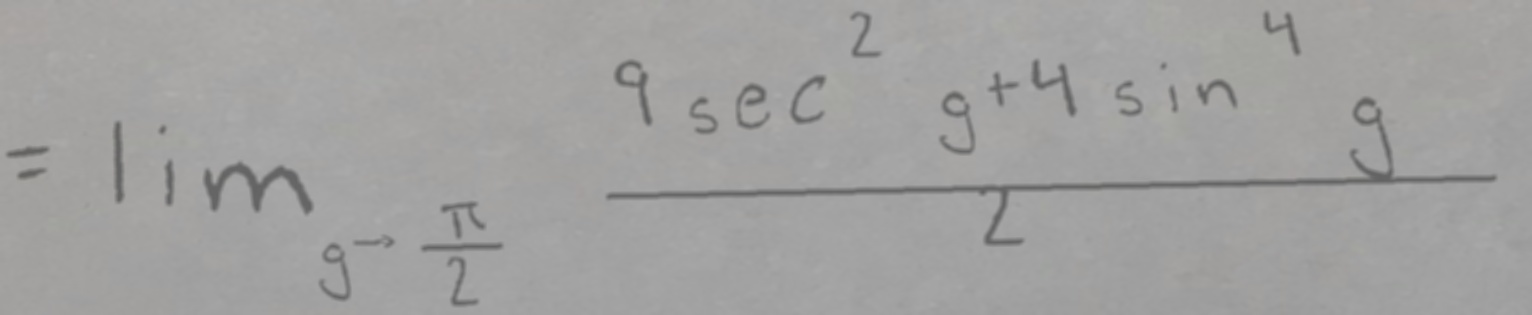 = \lim_{g \to \frac{\pi}{2}} \frac{9 \sec^2 g + 4 \sin^4 g}{2}